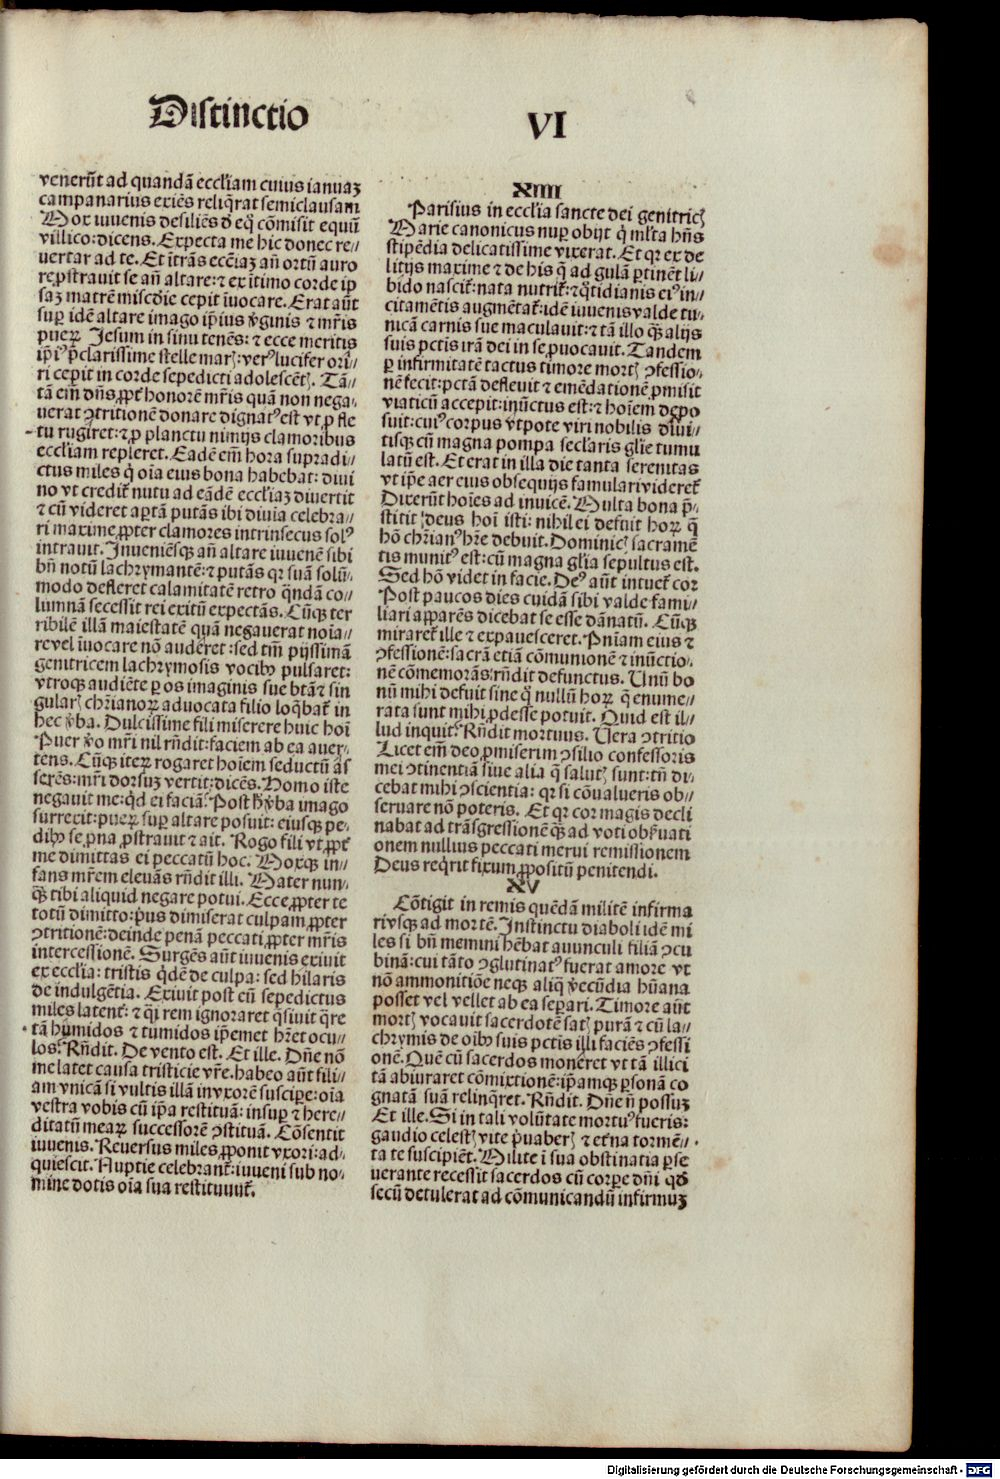 Distinctio VI
venerūt ad quandā eccl̄iam cuius ianuaꝫ
campanarius exiēs reliq̄rat semiclausam
Mox iuuenis desiliēs d̓ eq̄ cōmisit equū
villico: dicens. Expecta me hic donec re⸗
uertar ad te. Et ītrās ecc̄iaꝫ an̄ ortū auro
re ꝓstrauit se an̄ altare: ⁊ ex ītimo corde ip̄
saꝫ matrē miscd̄ie cepit īuocare. Erat aūt
suꝑ idē altare imago ip̄ius v̓ginis ⁊ mr̄is
pueꝝ Jesum in sinu tenēs: ⁊ ecce meritis
ip̄iꝰ p̄clarissime stelle marꝭ: verꝰ lucifer orī⸗
ri cepit in corde sepedicti adolescētꝭ. Tā⸗
tā em̄ dn̄s ꝓpt̓ honorē mr̄is quā non nega⸗
uerat ↄtritionē donare dignatꝰ est vt p̱ fle
tu rugiret: ⁊ ꝓ planctu nimijs clamoribus
eccl̄iam repleret. Eadē em̄ hora supradi⸗
ctus miles q̇ oīa eius bona habebat: diui
no vt credit̓ nutu ad eādē eccl̄iaꝫ diuertit
⁊ cū videret aꝑtā putās ibi diuīa celebra⸗
ri maxime ꝓpter clamores intrinsecus solꝰ
intrauit. Inueniēsqꝫ an̄ altare iuuenē sibi
bn̄ notū lachrymantē: ⁊ putās qꝛ suā solū⸗
modo defleret calamitatē retro q̄ndā co⸗
lumnā secessit rei exitū expectās. Cūqꝫ ter
ribilē illā maiestatē quā negauerat noīa⸗
re vel īuocare nō auderet: sed tm̄ pijssimā
genitricem lachrymosis vocibꝰ pulsaret:
vtroqꝫ audiēte ꝑ os imaginis sue btā ⁊ sin
gularꝭ chr̄ianoꝝ aduocata filio loq̄bat̓ in
hec v̓ba. Dulcissime fili miserere huic hoī
Puer v̓o mr̄i nil rn̄dit: faciem ab ea auer⸗
tens. Cūqꝫ iteꝝ rogaret hoīem seductū as
serēs: mr̄i dorsuꝫ vertit: dicēs. Homo iste
negauit me: qd̓ ei faciā. Post h̓ v̓ba imago
surrexit: pueꝝ suꝑ altare posuit: eiusqꝫ pe⸗
dibꝰ se ꝓna ꝓstrauit ⁊ ait. Rogo fili vt ꝓpt̓
me dimittas ei peccatū hoc. Moxqꝫ in⸗
fans mr̄em eleuās rn̄dit illi. Mater nun⸗
qꝫ̄ tibi aliquid negare potui. Ecce ꝓpter te
totū dimitto: pr̓us dimiserat culpam ꝓpter
ↄtritionē: deinde penā peccati ꝓpter mr̄is
intercessionē. Surgēs aūt iuuenis exiuit
ex eccl̄ia: tristis q̇dē de culpa: sed hilaris
de indulgētia. Exiuit post eū sepedictus
miles latent̓: ⁊ q̄i rem ignoraret q̄siuit q̄re
tā humidos ⁊ tumidos ip̄emet hr̄et ocu⸗
los. Rn̄dit. De vento est. Et ille. Dn̄e nō
me latet causa tristicie vr̄e. habeo aūt fili⸗
am vnicā si vultis illā in vxorē suscipe: oīa
vestra vobis cū ip̄a restituā: insuꝑ ⁊ here⸗
ditatū meaꝝ successorē ↄstituā. Cōsentit
iuuenis. Reuersus miles ꝓponit vxori: ad⸗
quiescit. Nuptie celebrant̓: iuueni sub no⸗
mine dotis oīa sua restituunt̓.
XIIII
Parisius in eccl̄ia sancte dei genitricꝭ
Marie canonicus nuꝑ obijt q̇ ml̓ta hn̄s
stipēdia delicatissime vixerat. Et qꝛ ex de
litijs maxime ⁊ de his q̄ ad gulā ꝑtinēt li⸗
bido nascit̓: nata nutrit̓: ⁊ q̇tidianis eiꝰ in⸗
citamētis augmētat̓: idē iuuenis valde tu⸗
nicā carnis sue maculauit: ⁊ tā illo qꝫ̄ alijs
suis pctis irā dei in se ꝓuocauit. Tandem
ꝑ infirmitatē tactus timore mortꝭ ↄfessio⸗
nē fecit: pctā defleuit ⁊ emēdationē ꝓmisit
viaticū accepit: inūctus est: ⁊ hoīem depo
suit: cuiꝰ corpus vtpote viri nobilis diui⸗
tisqꝫ cū magna pompa secl̄aris gl̄ie tumu
latū est. Et erat in illa die tanta serenitas
vt ip̄e aer eius obsequijs famulari videret̓
Dixerūt hoīes ad inuicē. Multa bona p̄⸗
stitit deus hoī isti: nihil ei defuit hoꝝ q̄
hō chr̄ianꝰ hr̄e debuit. Dominicꝭ sacramē
tis munitꝰ est: cū magna gl̄ia sepultus est.
Sed hō videt in facie. Deꝰ aūt intuet̓ cor
Post paucos dies cuidā sibi valde fami⸗
liari apparēs dicebat se esse dānatū. Cūqꝫ
miraret̓ ille ⁊ expauesceret. Pn̄iam eius ⁊
ↄfessionē: sacrā etiā cōmunionē ⁊ inūctio⸗
nē cōmemorās: rn̄dit defunctus. Unū bo
nū mihi defuit sine q̇ nullū hoꝝ q̄ enume⸗
rata sunt mihi ꝓdesse potuit. Quid est il⸗
lud inquit? Rn̄dit mortuus. Uera ↄtritio
Licet em̄ deo ꝓmiserim ↄsilio confessoris
mei ↄtinentiā siue alia q̄ salutꝭ sunt: tn̄ di⸗
cebat mihi ↄscientia: qꝛ si cōualueris ob⸗
seruare nō poteris. Et qꝛ cor magis decli
nabat ad trāsgressionē qꝫ̄ ad voti obẜuati
onem nullius peccati merui remissionem
Deus req̇rit fixum ꝓpositū penitendi.
XV
Cōtigit in remis quēdā militē infirma
ri vsqꝫ ad mortē. Instinctu diaboli idē mi
les si bn̄ memini hēbat auunculi filiā ↄcu
binā: cui tāto ↄglutinatꝰ fuerat amore vt
nō ammonitiōe neqꝫ aliq̄ v̓ecūdia hūana
posset vel vellet ab ea separi. Timore aūt
mortꝭ vocauit sacerdotē satꝭ purā ⁊ cū la⸗
chrymis de oībꝰ suis pctis illi faciēs ↄfessi
onē. Quē cū sacerdos moneret vt tā illici
tā abiuraret cōmixtionē: ip̄amqꝫ ꝑsonā co
gnatā suā relinq̄ret. Rn̄dit. Dn̄e n̄ possuꝫ
Et ille. Si in tali volūtate mortuꝰ fueris:
gaudio celestꝭ vite p̓uaberꝭ ⁊ et̓na tormē⸗
ta te suscipiēt. Milite ī sua obstinatia ꝑse
uerante recessit sacerdos cū corpe dn̄i qd̓
secū detulerat ad cōmunicandū infirmuꝫ
Digitalisierung gefördert durch die Deutsche Forschungsgemeinschaft - DFG